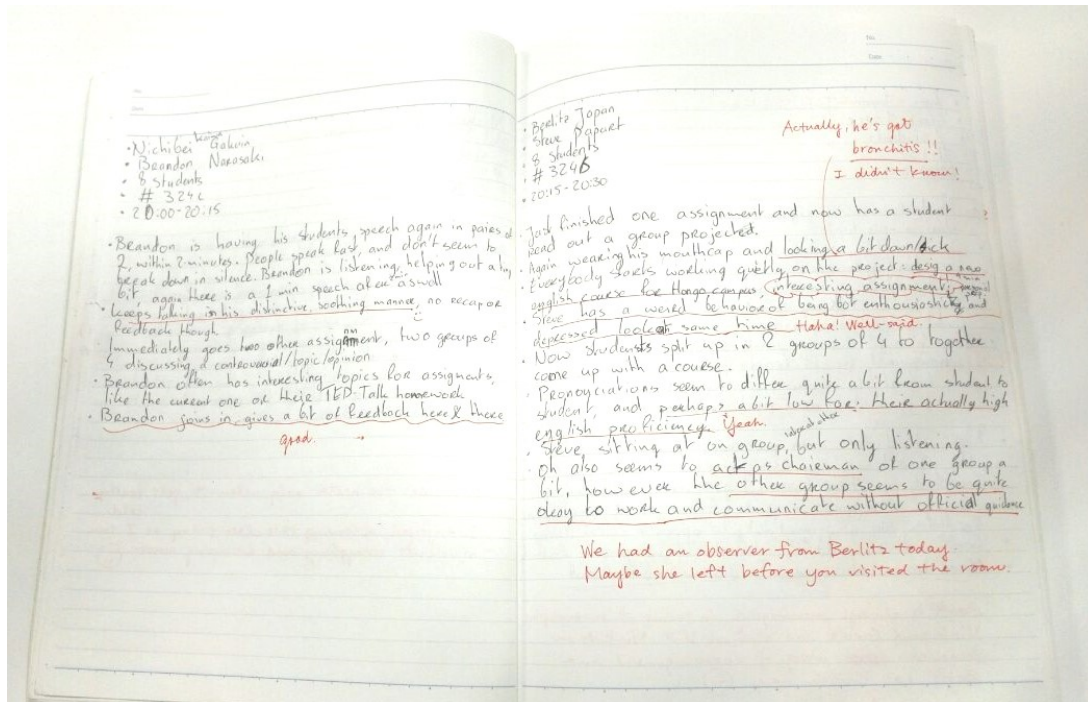 No.
Date
• Nichibei Kaiwa Gakuin
• Brandon Narasaki
• 8 Students
• # 324c
• 20:00-20:15
• Brandon is having his students, speech again in paires of
2, within 2 minutes. People speak fast, and don't seem to
break down in silence. Brandon is listening, helping out a tiny
bit, again there is a 1 min speech after as wall
• Keeps talking in his distinctive, soothing manner, no recap or
feedback though
• Immediately goes two other assignment, two groups of
4 discussing a controversial/topic/opinion
• Brandon often has interesting topics for assigments,
like the current one or their TED-Talk homework
• Brandon joins in, gives a bit of feedback here & there
good.
No.
Date
• Berlitz Japan
• Steve Papart
• 8 Students
• # 3246
• 20:15-20:30
Actually, he's got
bronchitis!!
I didn't know!
• Just finished one assignment and now has a student
read out a group projected.
• Again wearing his mouthcap and looking a bit down/sick
• Everybody starts working quietly on the project: desig a new
english course for Hongo campus, (interesting assignment)
• Steve has a wered behavior of being bot enthousiastic, and
depressed look at same time Haha! Well-said.
• Now students split up in 2 groups of 4 to together
come up with a course.
• Pronounciations seem to differ quite a bit from student to
student, and perhaps a bit low for their actually high
english proficiency. Yeah.
• Steve, sitting at on group, but only listening.
• Oh also seems to act as chairman of one group a
bit, however the other group seems to be quite
okay to work and communicate without official guidence
We had an observer from Berlitz today.
Maybe she left before you visited the room.